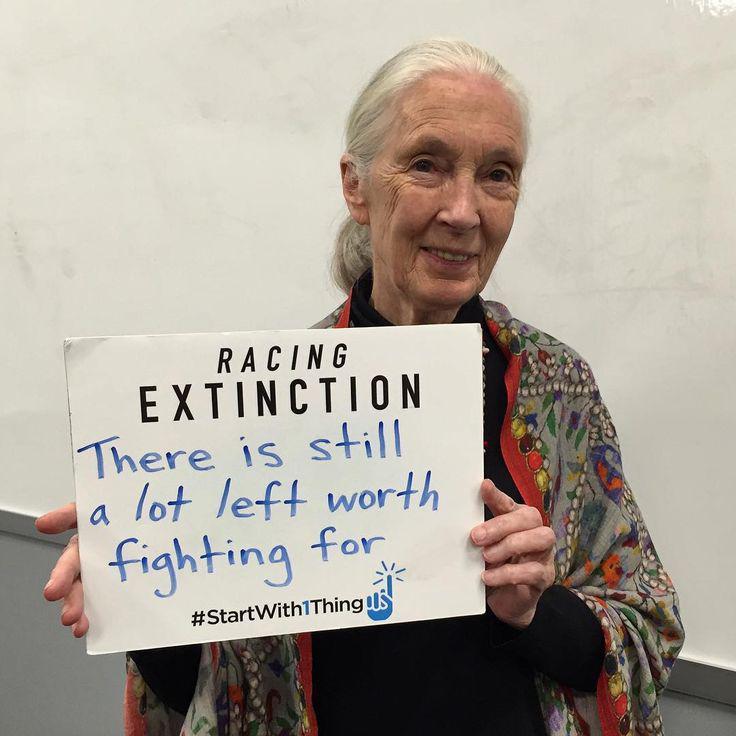 RACING
EXTINCTION
There is still
a lot left worth
fighting for
#StartWith1Thing